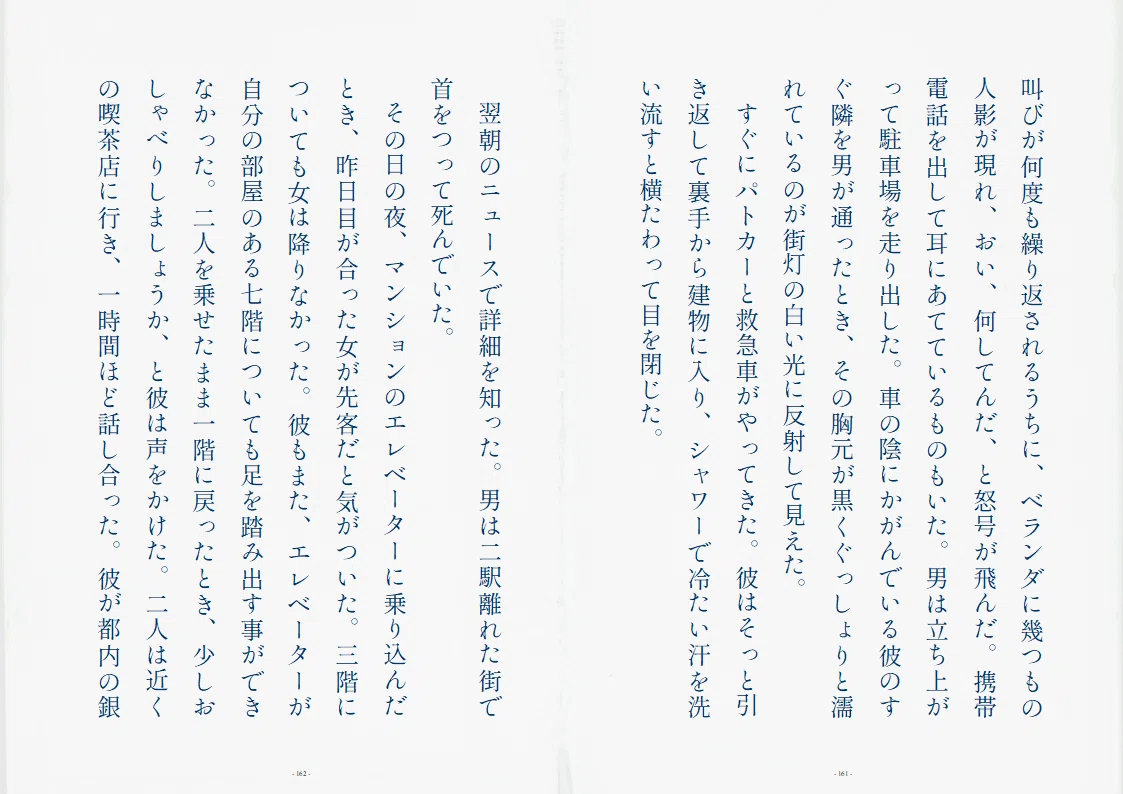 叫びが何度も繰り返されるうちに、ベランダに幾つもの
人影が現れ、おい、何してんだ、と怒号が飛んだ。携帯
電話を出して耳にあてているものもいた。男は立ち上が
って駐車場を走り出した。車の陰にかがんでいる彼のす
ぐ隣を男が通ったとき、その胸元が黒くぐっしょりと濡
れているのが街灯の白い光に反射して見えた。
すぐにパトカーと救急車がやってきた。彼はそっと引
き返して裏手から建物に入り、シャワーで冷たい汗を洗
い流すと横たわって目を閉じた。
- 161 -
翌朝のニュースで詳細を知った。男は二駅離れた街で
首をつって死んでいた。
その日の夜、マンションのエレベーターに乗り込んだ
とき、昨日目が合った女が先客だと気がついた。三階に
ついても女は降りなかった。彼もまた、エレベーターが
自分の部屋のある七階についても足を踏み出す事ができ
なかった。二人を乗せたまま一階に戻ったとき、少しお
しゃべりしましょうか、と彼は声をかけた。二人は近く
の喫茶店に行き、一時間ほど話し合った。彼が都内の銀
- 162 -